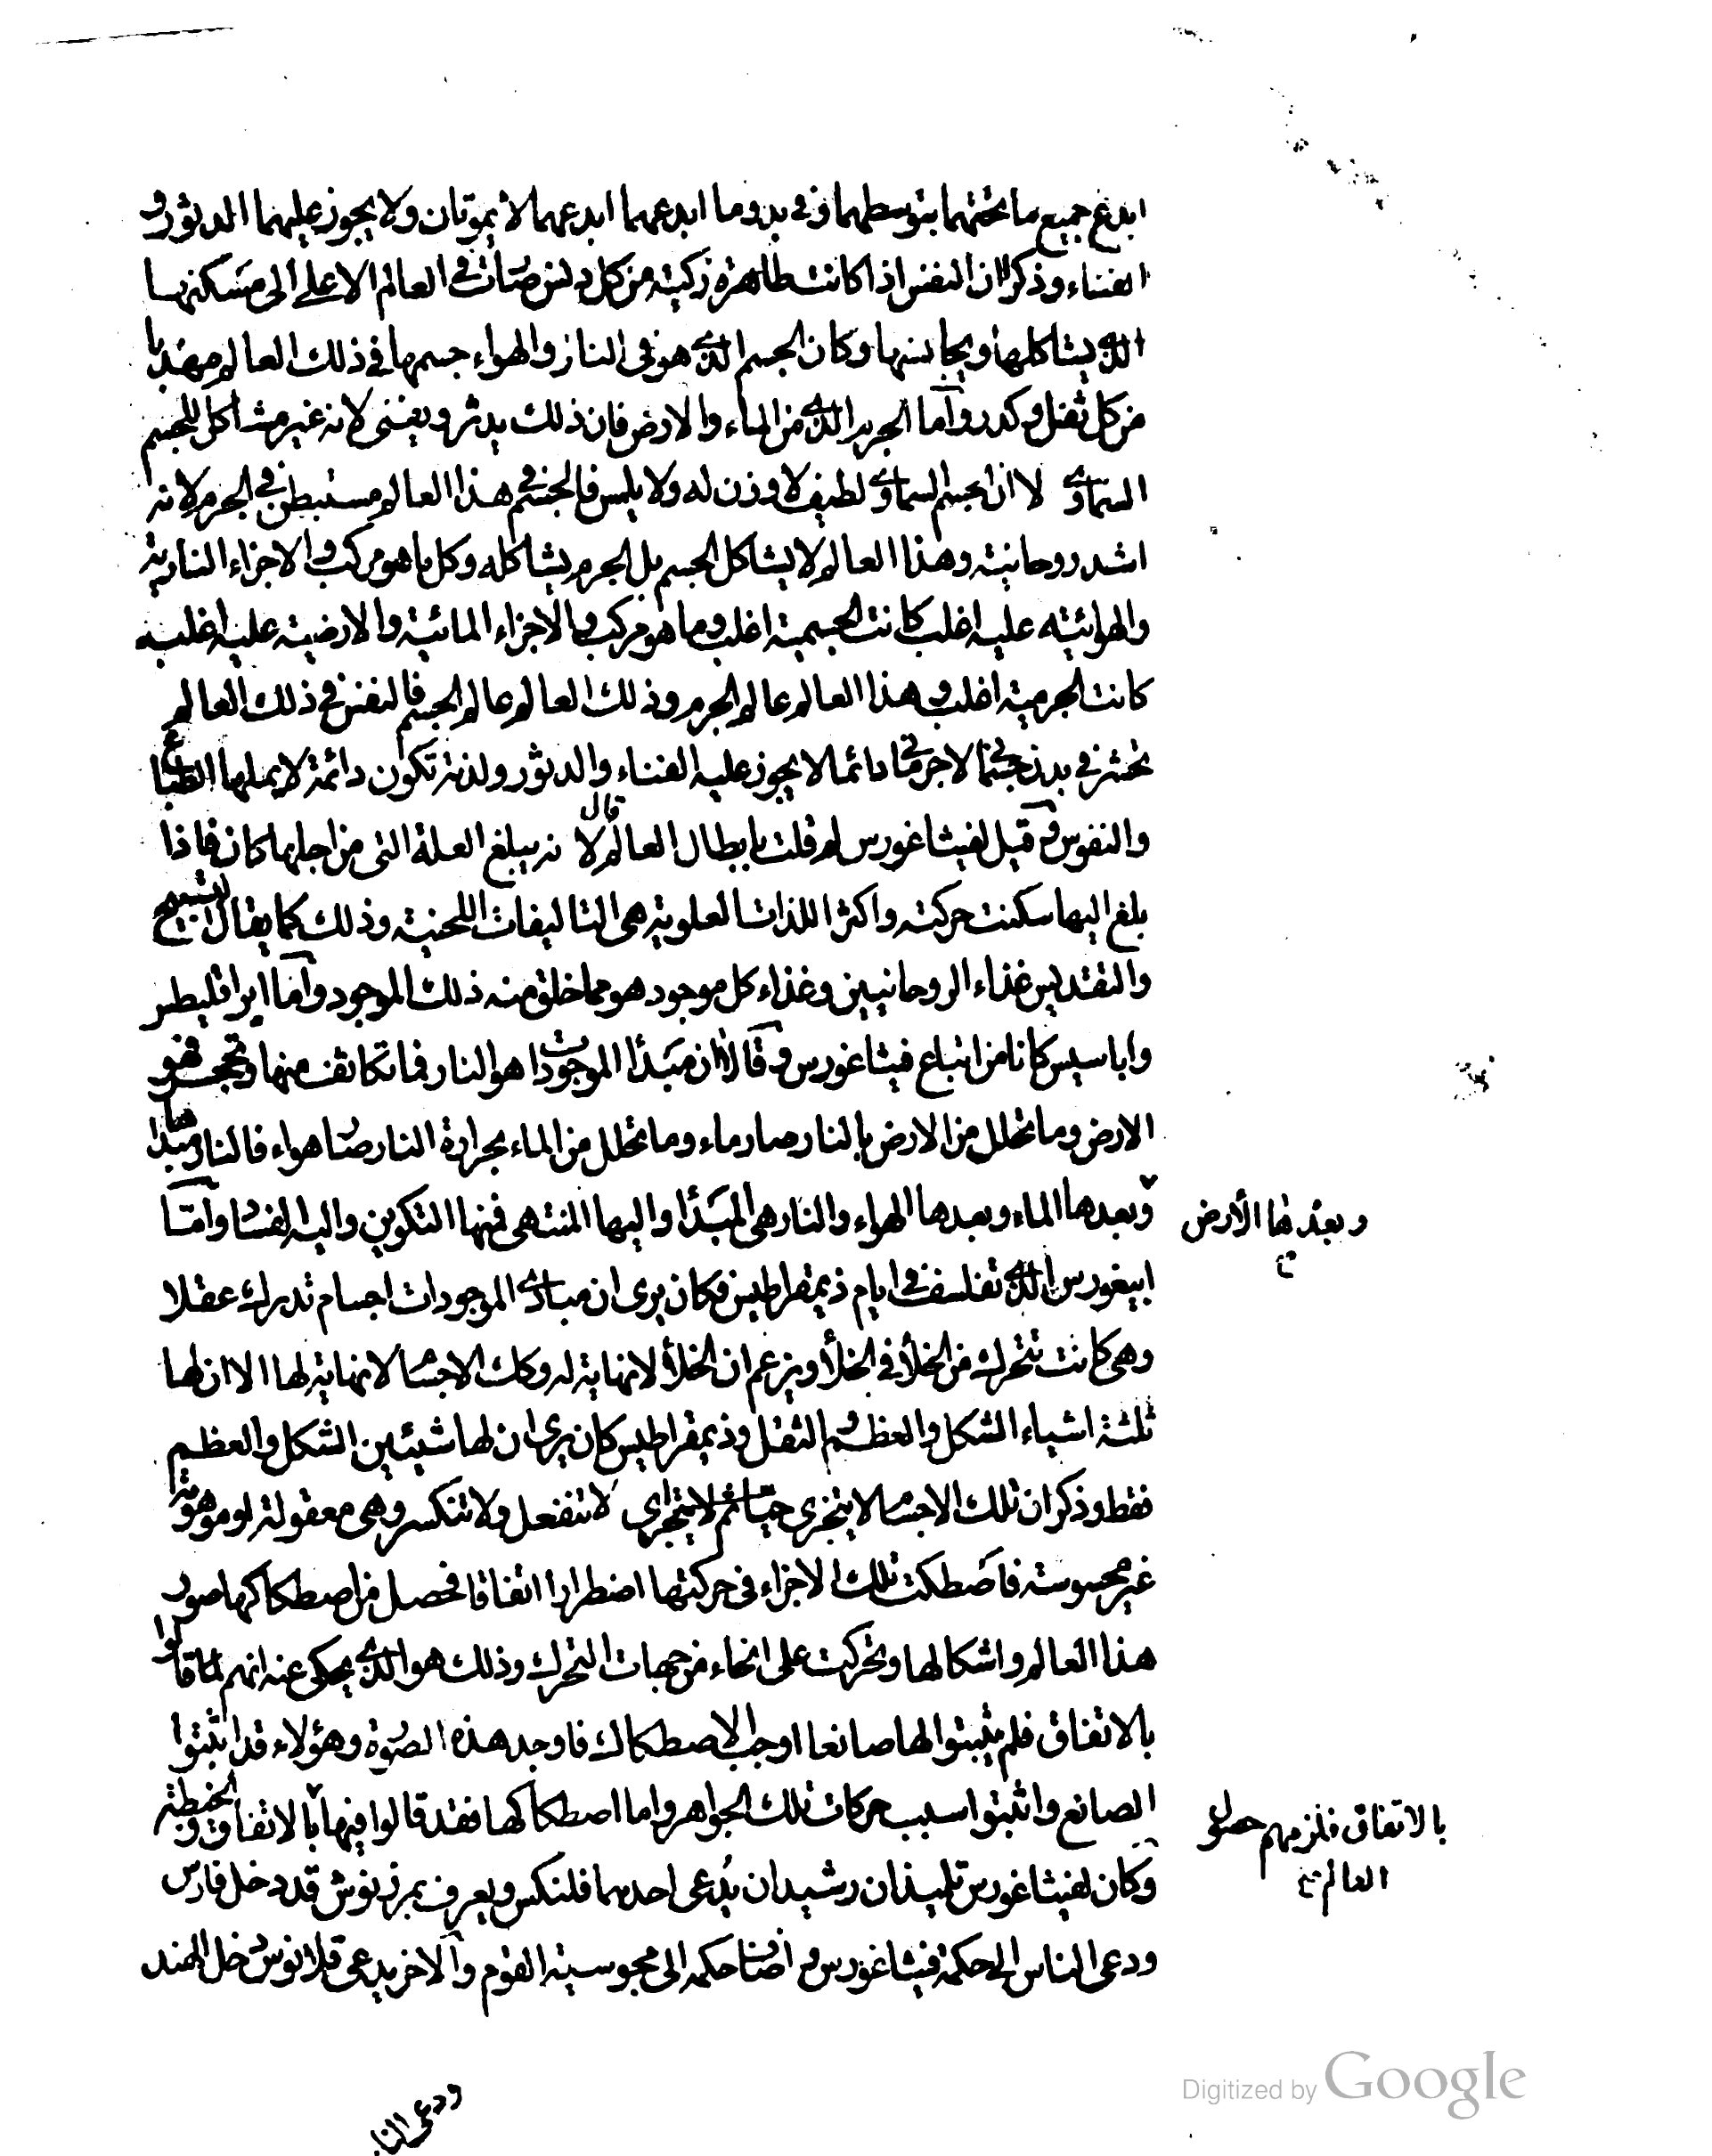 ابدع جميع ما تحتهما بتوسطهما وفي بدو ما ابدعهما ابدعهما لا يموتان ولا يجوز عليهما الدثور و
الفناء وذكر ان النفس اذا كانت طاهرة زكية من كل دنس صارت في العالم الاعلى الى مسكنها
الذي يشاكلها ويجانسها وكان الجسم الذي هو في النار والهواء جسمها في ذلك العالم مهذبا
من كل ثفل وكدر وأما الجرم الذي من الماء والارض فان ذلك يدثر ويفنى لانه غير مشاكل للجسم
السماوي لا ان الجسم السماوي لطيف لا وزن له ولا يلمس فالجسم في هذا العالم مستبطن في الجرم لانه
اشد روحانية وهذا العالم لا يشاكل الجسم بل الجرم يشاكله وكل ما هو مركب والاجزاء النارية
والهوائية عليه اغلب كانت الجسمية اغلب وما هو مركب والاجزاء المائية والارضية عليه اغلب
كانت الجرمية اغلب وهذا العالم عالم الجرم وذلك العالم عالم الجسم فالنفس في ذلك العالم
تحشر في بدن جسماني لا جرماني دائما لا يجوز عليه الفناء والدثور ولذته تكون دائمة لا يملها الطباع
والنفوس وقيل لفيثاغورس لم قلت بابطال العالم قال لانه يبلغ العلة التي من اجلها كان فاذا
بلغ اليها سكنت حركته واكثر اللذات العلوية هي التاليفات اللحنية وذلك كما يقال التسبيح
والتقديس غذاء الروحانيين وغذاء كل موجود هو مما خلق منه ذلك الموجود وأما ايراقليطس
واباسيس كانا من اتباع فيثاغورس وقالا ان مبدأ الموجودات هو النار فما تكاثف منها وتحجر فهو
الارض وما تحلل من الارض بالنار صار ماء وما تحلل من الماء بحرارة النار صار هواء فالنار مبدأ
وبعدها الارض
وبعدها الماء وبعدها الهواء والنار هي المبدأ واليها المنتهى فمنها التكوين واليه الفساد وأما
ابيغورس الذي تفلسف في ايام ذيمقراطيس فكان يرى ان مبادي الموجودات اجسام تدرك عقلا
وهي كانت تتحرك من الخلأ في الخلأ وزعم ان الخلأ لا نهاية له وكذلك الاجسام لا نهاية لها الا ان لها
ثلثة اشياء الشكل والعظم والثقل وذيمقراطيس كان يرى ان لها شيئين الشكل والعظم
فقط وذكر ان تلك الاجسام لا يتجزى لا تنفعل ولا تنكسر وهي معقولة او موهومة
غير محسوسة فاصطكت تلك الاجزاء في حركتها اضطرارا اتفاقا فحصل من اصطكاكها صور
هذا العالم واشكالها وتحركت على انحاء من جهات التحرك وذلك هو الذي يحكى عنه انهم لما قالوا
بالاتفاق فلم يثبتوا لها صانعا اوجب الاصطكاك فاوجد هذه الصورة وهؤلاء قد اثبتوا
الصانع واثبتوا سبب حركات تلك الجواهر واما اصطكاكها فقد قالوا فيها بالاتفاق والخبطة
بالاتفاق فلزمهم حصول
العالم
وكان لفيثاغورس تلميذان رشيدان يدعى احدهما فلنكس ويعرف بمرزنوش قد دخل فارس
ودعى الناس الى حكمة فيثاغورس واضاف حكمه الى مجوسية القوم والاخر يدعى قلانوس دخل الهند
ودعى النا
Digitized by Google